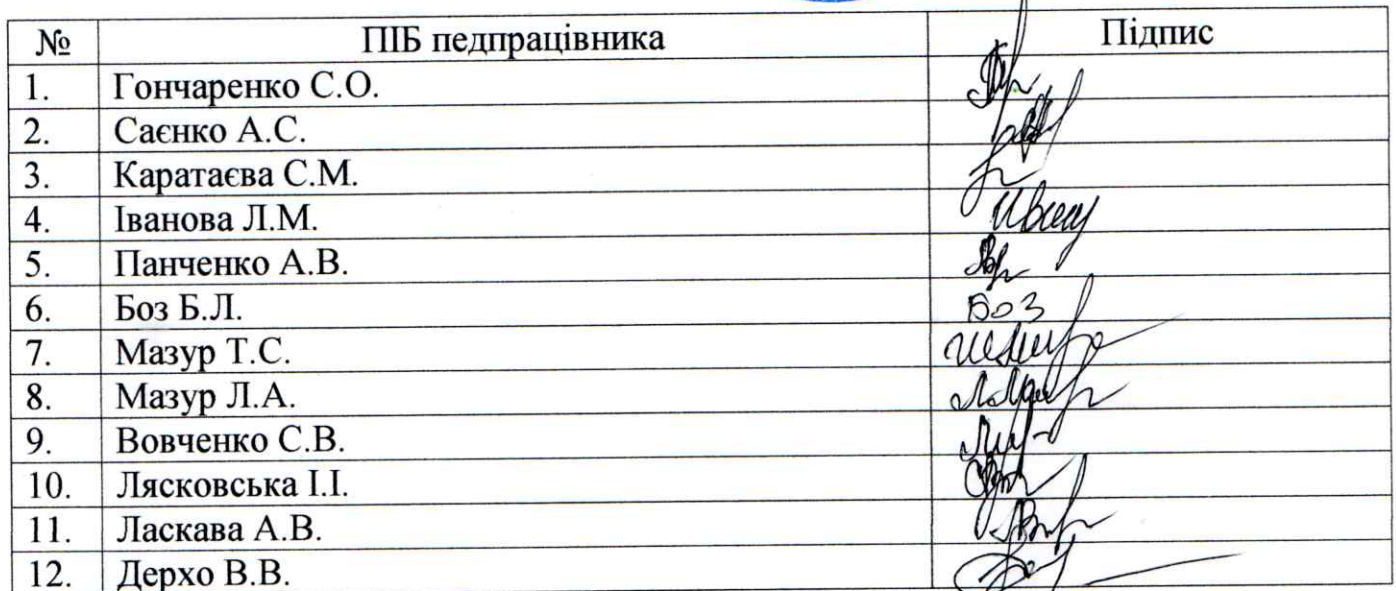 № ПІБ педпрацівника Підпис
1. Гончаренко С.О.
2. Саєнко А.С.
3. Каратаєва С.М.
4. Іванова Л.М.
5. Панченко А.В.
6. Боз Б.Л. Боз
7. Мазур Т.С.
8. Мазур Л.А.
9. Вовченко С.В.
10. Лясковська І.І.
11. Ласкава А.В.
12. Дерхо В.В.